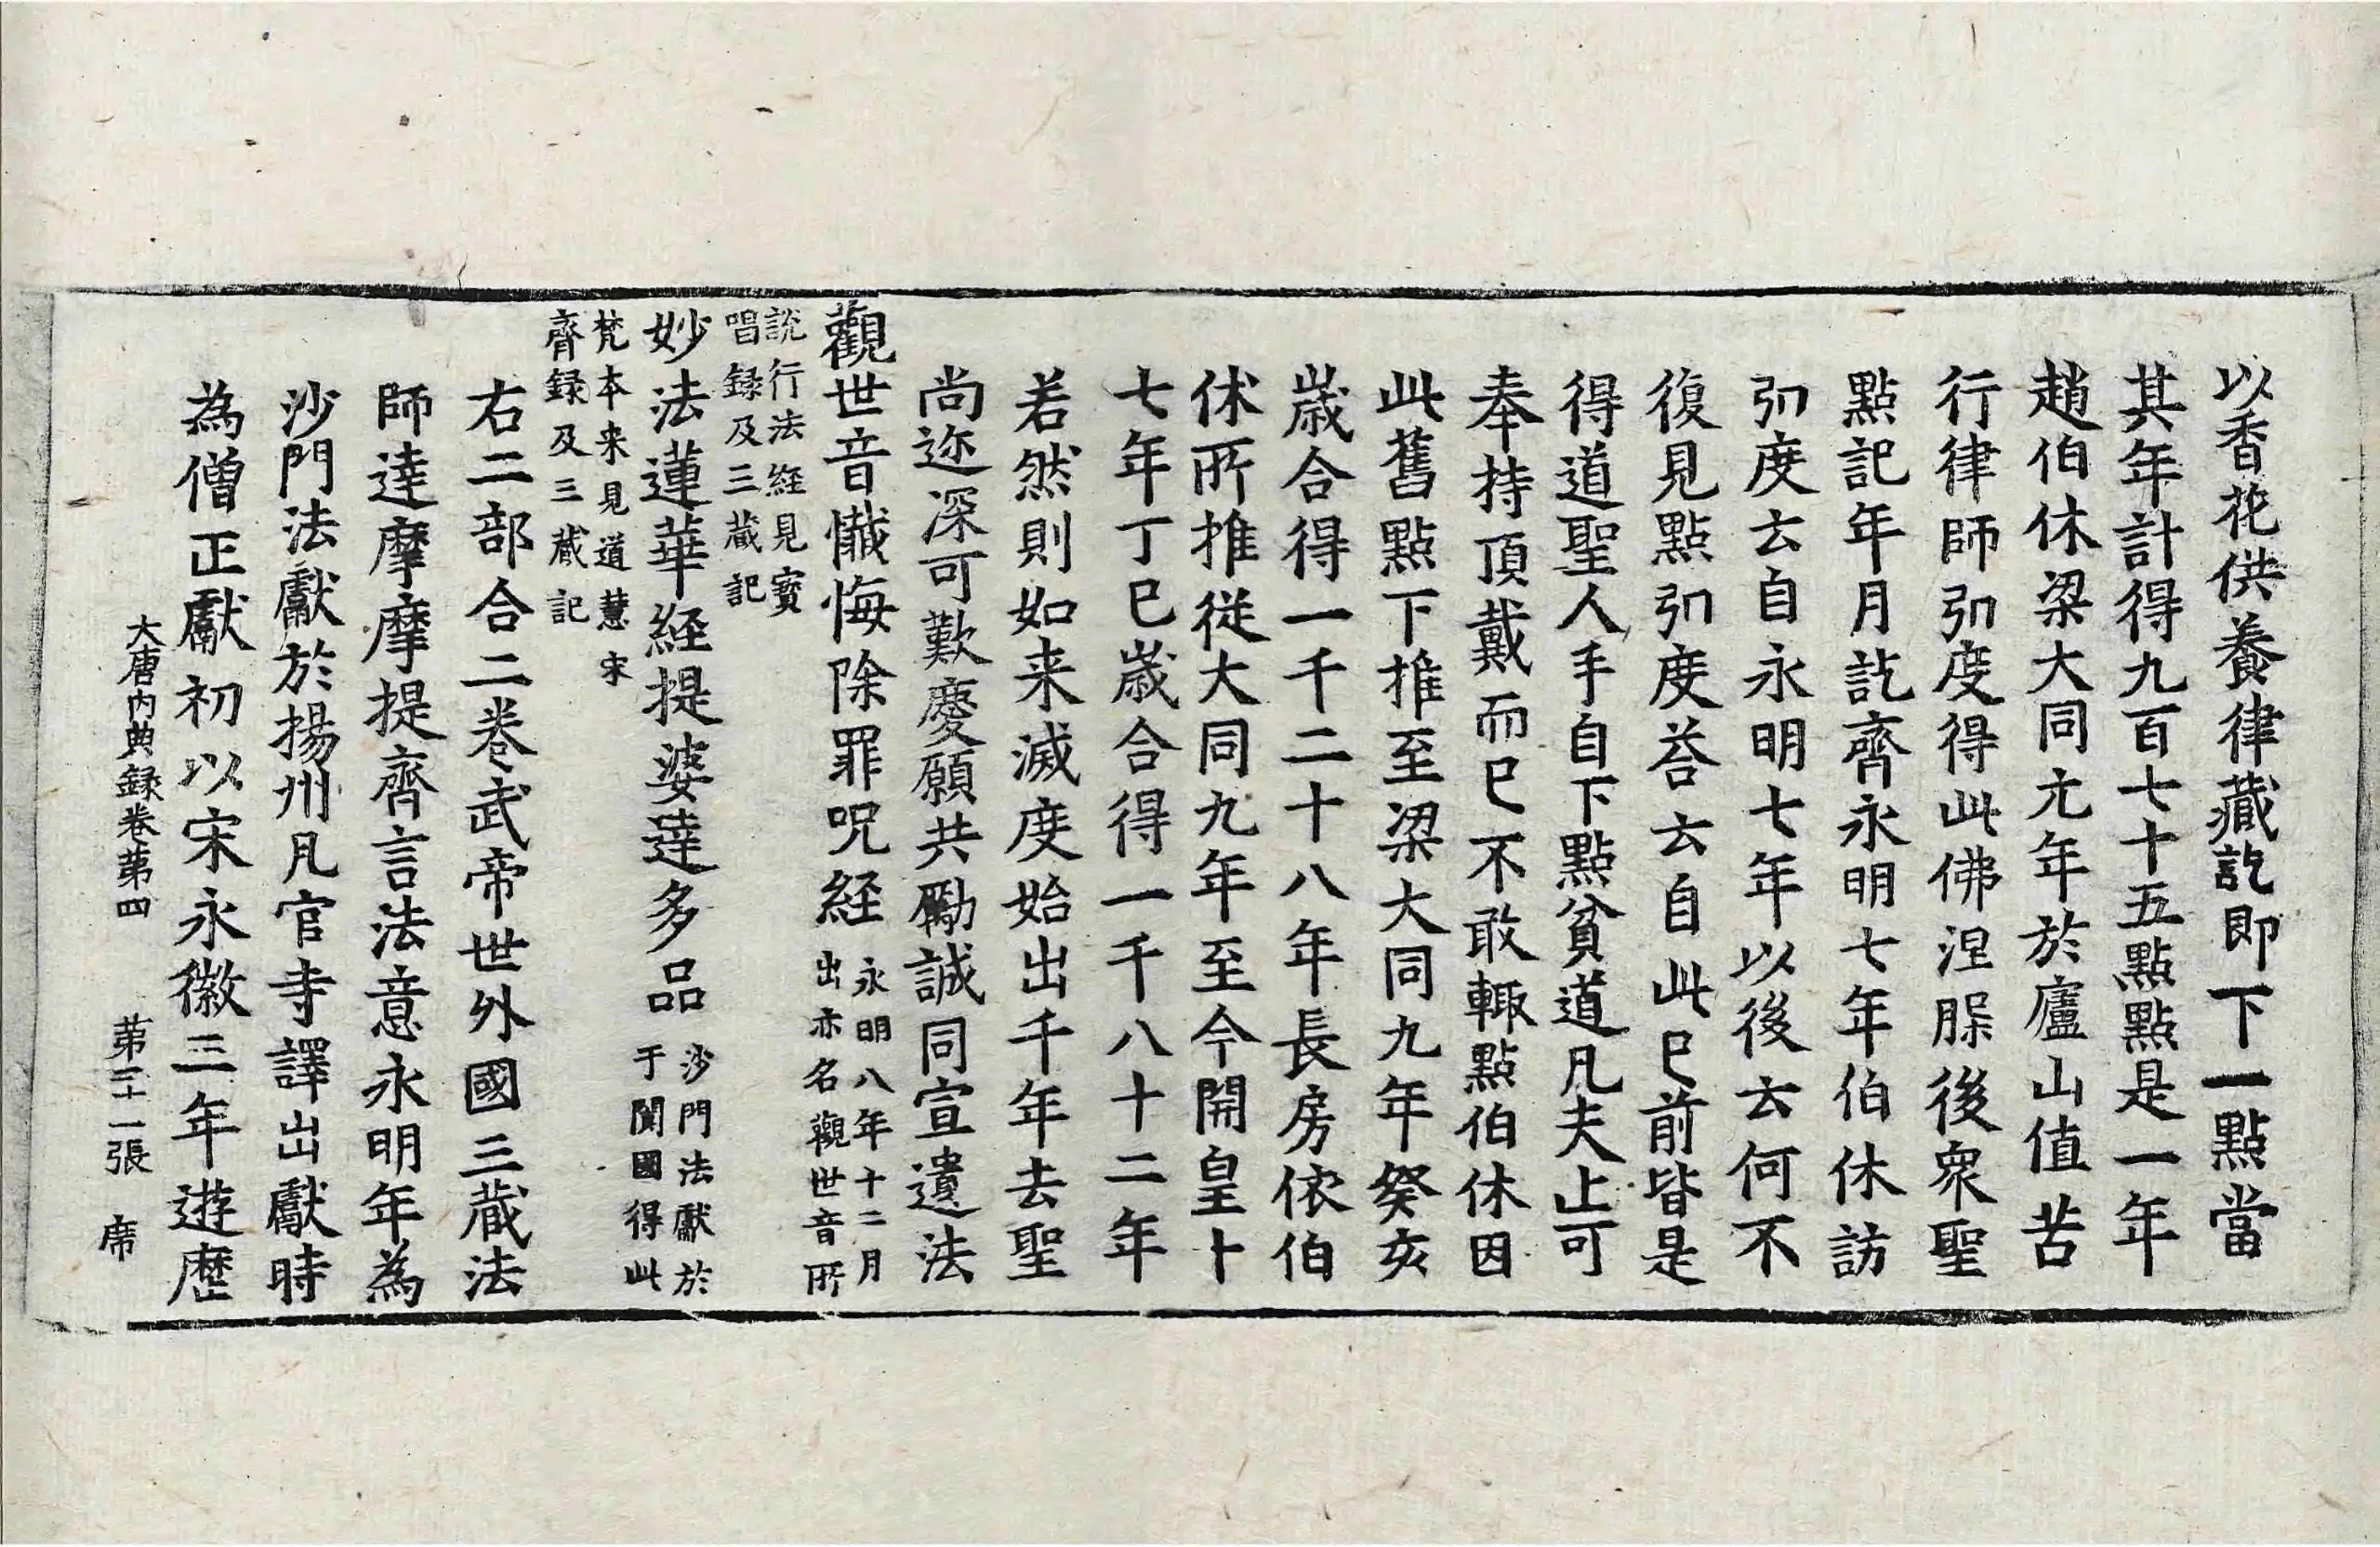 以香花供養律藏訖即下一點當
其年計得九百七十五點點是一年
趙伯休梁大同元年於廬山值苦
行律師弘度得此佛涅槃後衆聖
點記年月訖齊永明七年伯休訪
弘度云自永明七年以後云何不
復見點弘度荅云自此已前皆是
得道聖人手自下點貧道凡夫止可
奉持頂戴而已不敢輙點伯休因
此舊點下推至梁大同九年癸亥
歲合得一千二十八年長房依伯
休所推從大同九年至今開皇十
七年丁巳歲合得一千八十二年
若然則如来滅度始出千年去聖
尚迩深可歎慶願共勵誠同宣遺法
觀世音懺悔除罪呪経永明八年十二月
出亦名觀世音所
說行法経見寳
唱録及三蔵記
妙法蓮華経提婆達多品沙門法獻於
于闐國得此
梵本来見道慧宋
齊録及三蔵記
右二部合二卷武帝世外國三蔵法
師達摩摩提齊言法意永明年為
沙門法獻於揚州凡官寺譯出獻時
為僧正獻初以宋永徽三年遊歷
大唐内典録卷第四 第二十一張 席